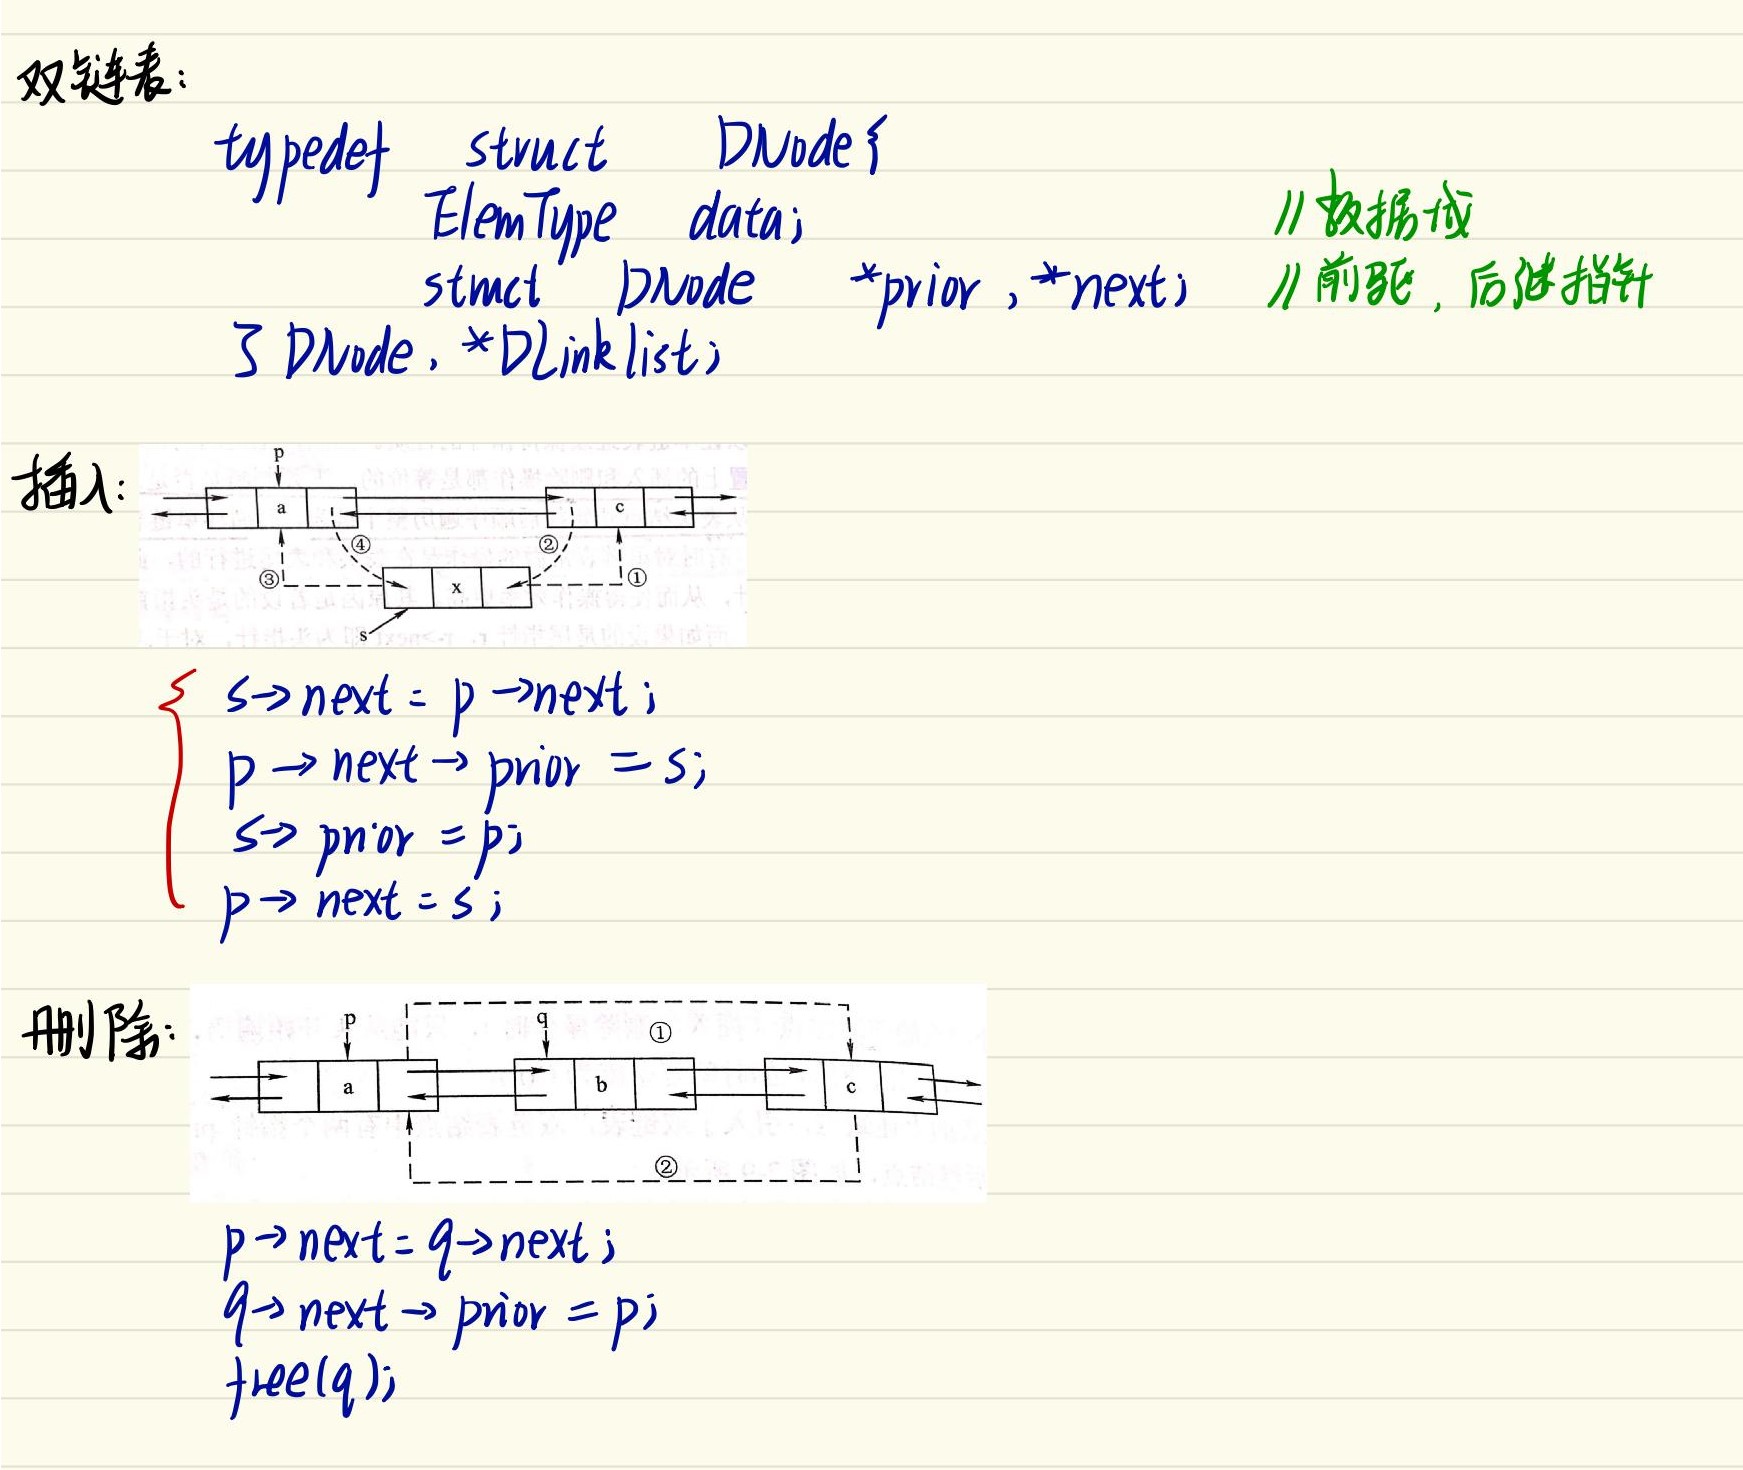 双链表:
typedef struct DNode{
ElemType data; //数据域
struct DNode *prior, *next; //前驱, 后继指针
} DNode, *DLinklist;
插入:
p
a c
④ ②
③ x ①
s
s→next = p→next;
p→next→prior = s;
s→prior = p;
p→next = s;
删除:
p q ①
a b c
②
p→next = q→next;
q→next→prior = p;
free(q);